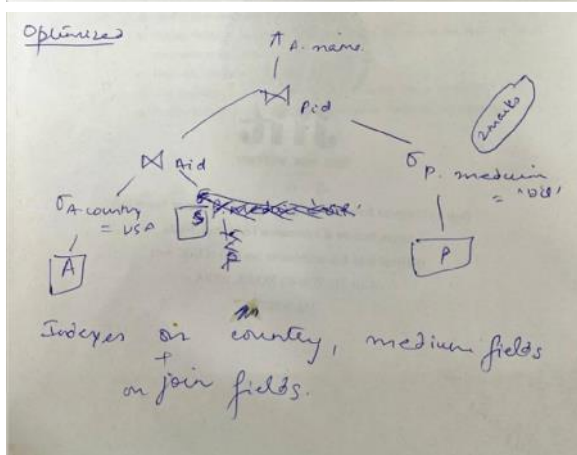 Optimized
π A. name
⋈ Pid
2marks
⋈ Aid
σ P. medium
= 'oil'
σ A. country
= USA
S
A
P
Indexes on country, medium fields
+
on join fields.